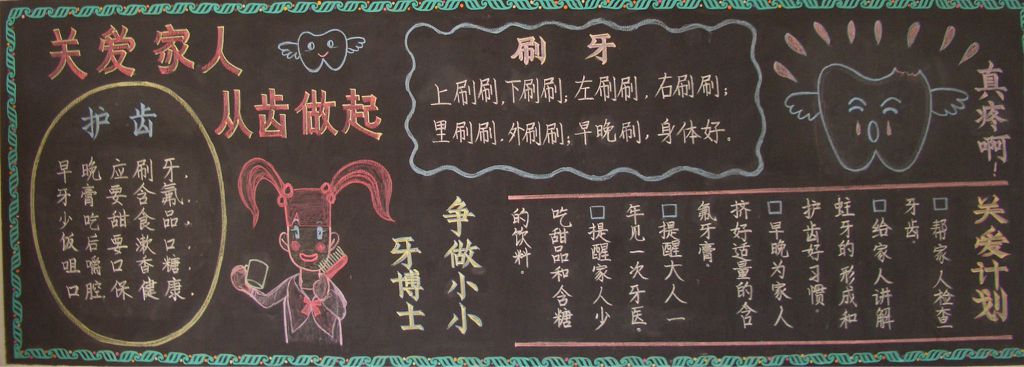 关爱家人
从齿做起
护齿
早晚应刷牙.
牙膏要含氟.
少吃甜食品.
饭后要漱口.
咀嚼口香糖.
口腔保健康.
争做小小
牙博士
刷牙
上刷刷,下刷刷;左刷刷,右刷刷;
里刷刷,外刷刷;早晚刷,身体好。
真疼啊!
关爱计划
□帮家人检查
牙齿.
□给家人讲解
蛀牙的形成和
护齿好习惯.
□早晚为家人
挤好适量的含
氟牙膏.
□提醒大人一
年见一次牙医.
□提醒家人少
吃甜品和含糖
的饮料.